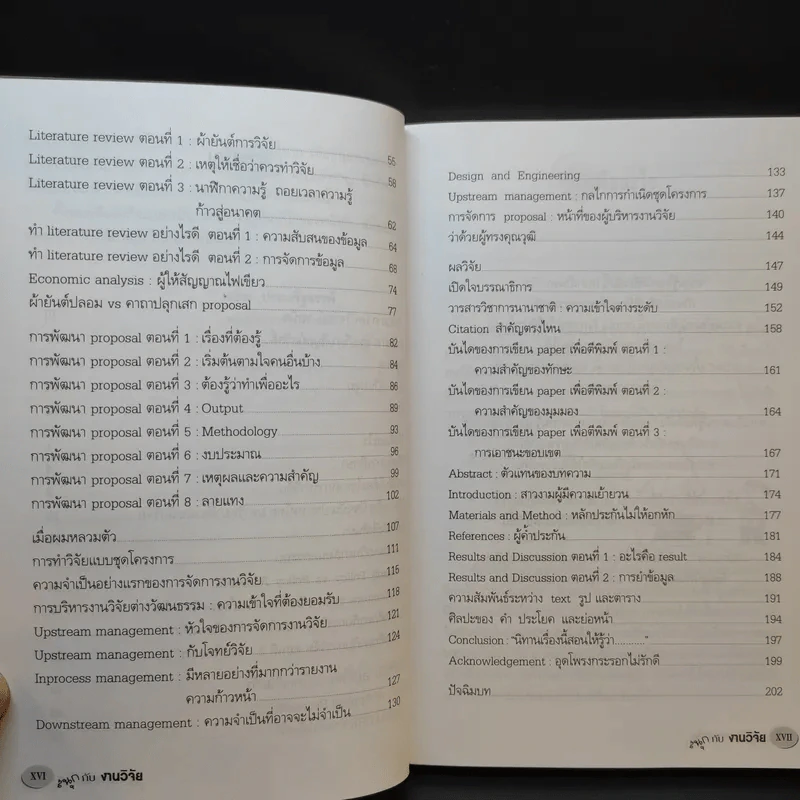 Literature review ตอนที่ 1 : ผ้ายันต์การวิจัย 55
Literature review ตอนที่ 2 : เหตุให้เชื่อว่าควรทำวิจัย 58
Literature review ตอนที่ 3 : นาฬิกาความรู้ ถอยเวลาความรู้
ก้าวสู่อนาคต 62
ทำ literature review อย่างไรดี ตอนที่ 1 : ความสับสนของข้อมูล 64
ทำ literature review อย่างไรดี ตอนที่ 2 : การจัดการข้อมูล 68
Economic analysis : ผู้ให้สัญญาณไฟเขียว 74
ผ้ายันต์ปลอม vs คาถาปลุกเสก proposal 77
การพัฒนา proposal ตอนที่ 1 : เรื่องที่ต้องรู้ 82
การพัฒนา proposal ตอนที่ 2 : เริ่มต้นตามใจคนอื่นบ้าง 84
การพัฒนา proposal ตอนที่ 3 : ต้องรู้ว่าทำเพื่ออะไร 86
การพัฒนา proposal ตอนที่ 4 : Output 89
การพัฒนา proposal ตอนที่ 5 : Methodology 93
การพัฒนา proposal ตอนที่ 6 : งบประมาณ 96
การพัฒนา proposal ตอนที่ 7 : เหตุผลและความสำคัญ 99
การพัฒนา proposal ตอนที่ 8 : ลายแทง 102
เมื่อผมหลวมตัว 107
การทำวิจัยแบบชุดโครงการ 111
ความจำเป็นอย่างแรกของการจัดการงานวิจัย 115
การบริหารงานวิจัยต่างวัฒนธรรม : ความเข้าใจที่ต้องยอมรับ 118
Upstream management : หัวใจของการจัดการงานวิจัย 121
Upstream management : กับโจทย์วิจัย 124
Inprocess management : มีหลายอย่างที่มากกว่ารายงาน
ความก้าวหน้า 127
Downstream management : ความจำเป็นที่อาจจะไม่จำเป็น 130
XVI สนุก กับ งานวิจัย
Design and Engineering 133
Upstream management : กลไกการกำเนิดชุดโครงการ 137
การจัดการ proposal : หน้าที่ของผู้บริหารงานวิจัย 140
ว่าด้วยผู้ทรงคุณวุฒิ 144
ผลวิจัย 147
เปิดใจบรรณาธิการ 149
วารสารวิชาการนานาชาติ : ความเข้าใจต่างระดับ 152
Citation สำคัญตรงไหน 158
บันไดของการเขียน paper เพื่อตีพิมพ์ ตอนที่ 1 :
ความสำคัญของทักษะ 161
บันไดของการเขียน paper เพื่อตีพิมพ์ ตอนที่ 2 :
ความสำคัญของมุมมอง 164
บันไดของการเขียน paper เพื่อตีพิมพ์ ตอนที่ 3 :
การเอาชนะขอบเขต 167
Abstract : ตัวแทนของบทความ 171
Introduction : สาวงามผู้มีความเย้ายวน 174
Materials and Method : หลักประกันไม่ให้อกหัก 177
References : ผู้ค้ำประกัน 181
Results and Discussion ตอนที่ 1 : อะไรคือ result 184
Results and Discussion ตอนที่ 2 : การยำข้อมูล 188
ความสัมพันธ์ระหว่าง text รูป และตาราง 191
ศิลปะของ คำ ประโยค และย่อหน้า 194
Conclusion : "นิทานเรื่องนี้สอนให้รู้ว่า..........." 197
Acknowledgement : อุดโพรงกระรอกไม่รักดี 199
ปัจฉิมบท 202
สนุก กับ งานวิจัย XVII